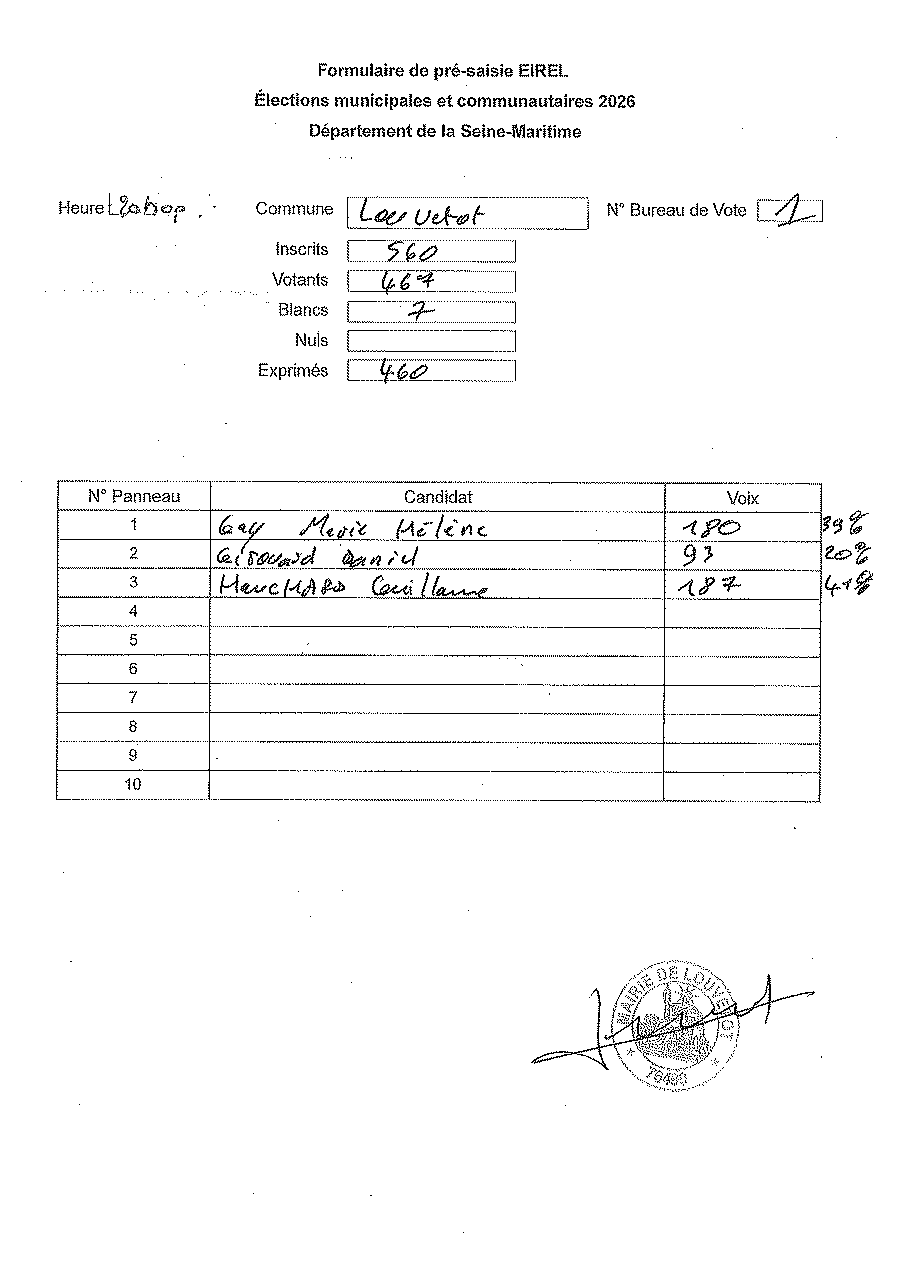 Formulaire de pré-saisie EIREL
Élections municipales et communautaires 2026
Département de la Seine-Maritime
Heure Commune Louvetot N° Bureau de Vote 1
Inscrits 560
Votants 467
Blancs 7
Nuls
Exprimés 460
N° Panneau Candidat Voix
1 Gay Marie Hélène 180 39%
2 Girouard Daniel 93 20%
3 MarcHARD Guillaume 187 41%
4
5
6
7
8
9
10
MAIRIE DE LOUVETOT
76490